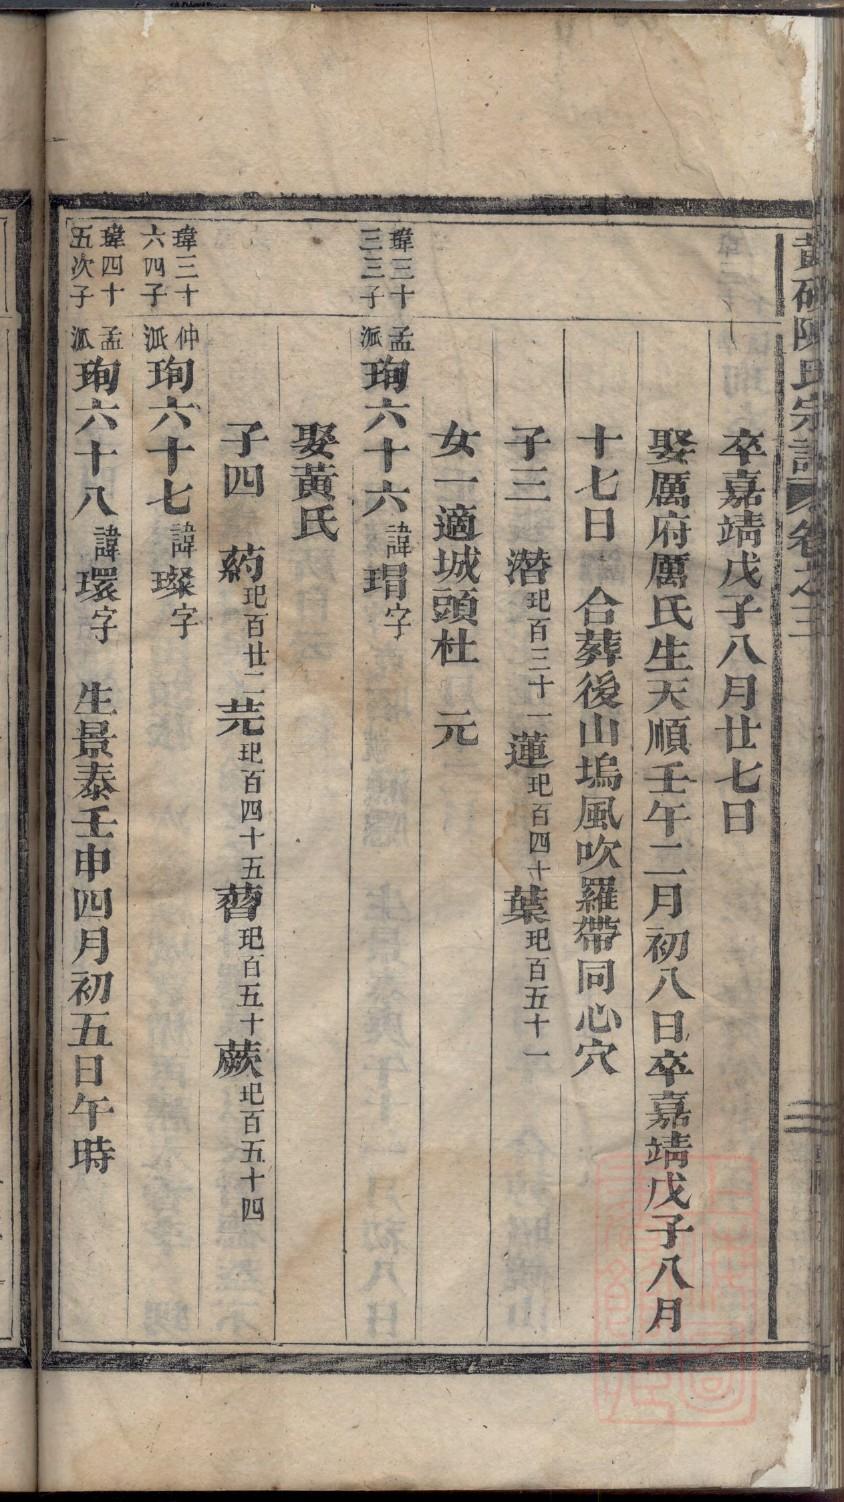 陳氏宗譜 卷之三
卒嘉靖戊子八月廿七日
娶厲府厲氏生天順壬午二月初八日卒嘉靖戊子八月
十七日 合葬後山塢風吹羅帶同心穴
子三 潛玘百三十一蓮玘百四十葉玘百五十一
女一適城頭杜 元
瑋三十三三子 孟派珣六十六諱瑁字
娶黃氏
子四 葯玘百廿二芫玘百四十五蒈玘百五十蕨玘百五十四
瑋三十六四子 仲派珣六十七諱璨字
瑋四十五次子 孟派珣六十八諱環字 生景泰壬申四月初五日午時